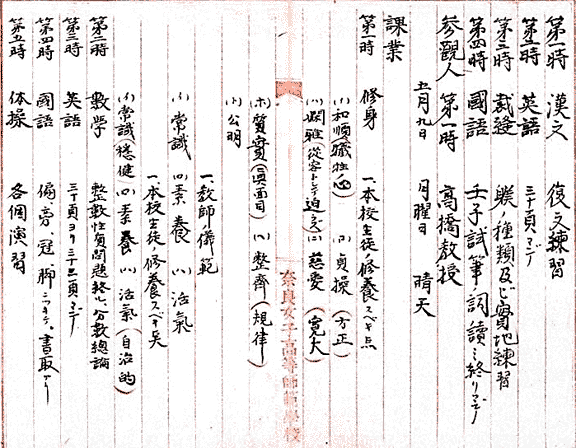 第一時 漢文 復文練習
第二時 英語 三十頁マデ
第三時 裁縫 襞ノ種類及ビ實地練習
第四時 國語 壬子試筆詞讀ミ終リマデ
參觀人 第一時 高橋教授
五月九日 月曜日 晴天
課業
第一時 修身 一、本校生徒ノ修養スベキ点
(イ)和順(犠牲ノ心) (ロ)貞操(方正)
(ハ)嫻雅(從容トシテ迫ラズ) (ニ)慈愛(寛大)
奈良女子高等師範學校
(ホ)質實(眞面目) (ヘ)整齊(規律)
(ト)公明
一、教師ノ儀範
(イ)常識 (ロ)素養 (ハ)活氣
一、本校生徒ノ修養スベキ点
(イ)常識(穏健) (ロ)素養 (ハ)活氣(自治的)
第二時 數學 整數性質問題終ル、分數總論
第三時 英語 三十頁ヨリ三十三頁マデ
第四時 國語 偏、旁、冠、脚ニツキテ、書取アリ
第五時 体操 各個演習